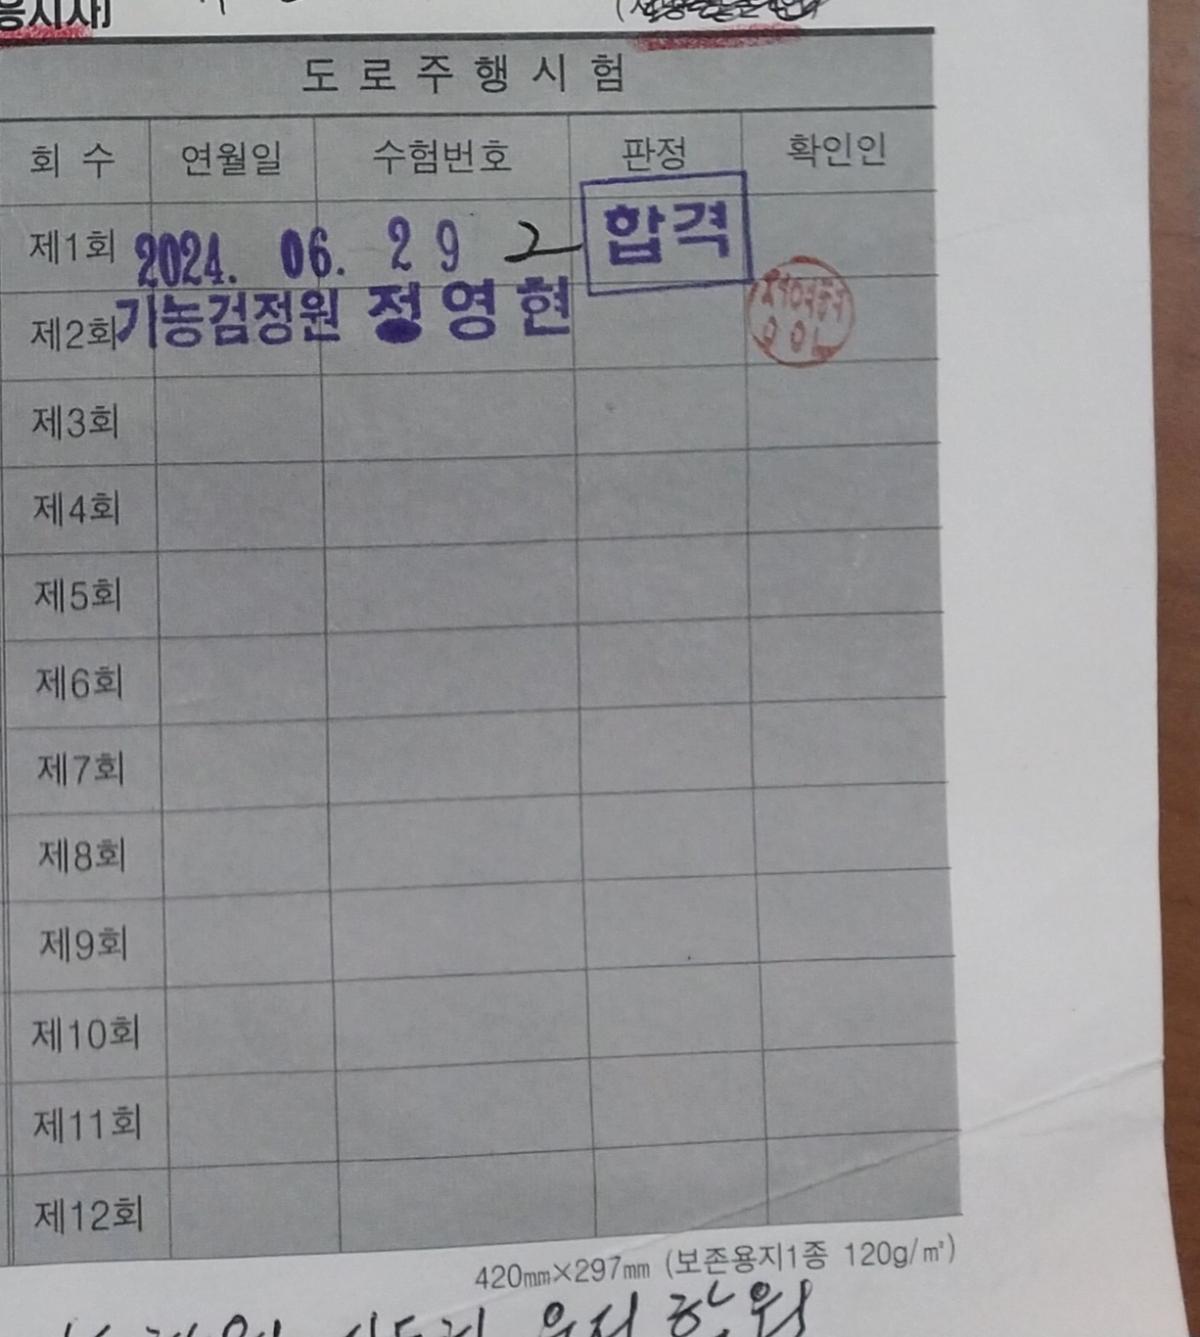 응시자]
도로주행시험
회 수 연월일 수험번호 판정 확인인
제1회 2024. 06. 29 2 합격
제2회 기능검정원 정영현
제3회
제4회
제5회
제6회
제7회
제8회
제9회
제10회
제11회
제12회
420㎜×297㎜ (보존용지1종 120g/㎡)